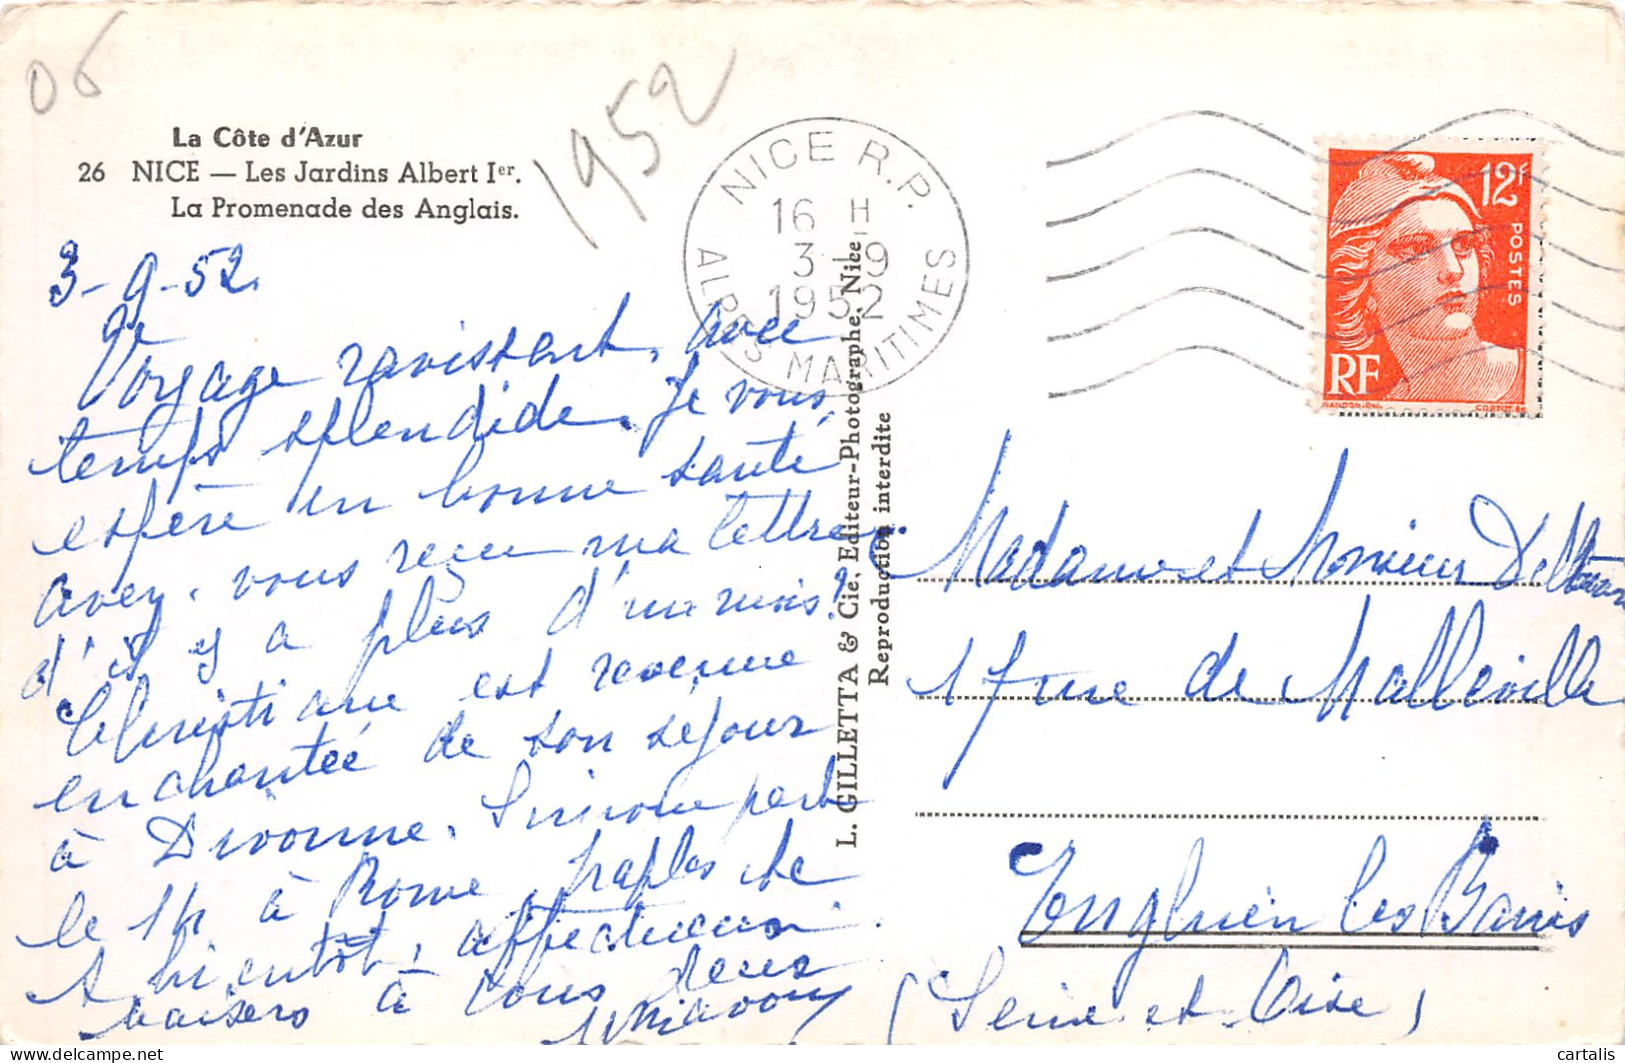 06
1952
La Côte d'Azur
26 NICE — Les Jardins Albert Ier.
La Promenade des Anglais.
3-9-52.
Voyage ravissant, avec
temps splendide. Je vous
espère en bonne santé
avez-vous reçu ma lettre
d'il y a plus d'un mois?
Christiane est revenue
enchantée de son séjour
à Divonne. Simone part
le 14 à Rome, Naples etc
A bientôt, affectueux
baisers à tous deux
L. GILLETTA & Cie, Editeur-Photographe, Nice
Reproduction interdite
NICE R.P.
16 H
3-9
1952
ALPES MARITIMES
12F
POSTES
RF
GANDON-DEL.
CORTOT-SC
Madame et Monsieur
17 rue de Malleville
Enghien les Bains
(Seine et Oise)
cartalis